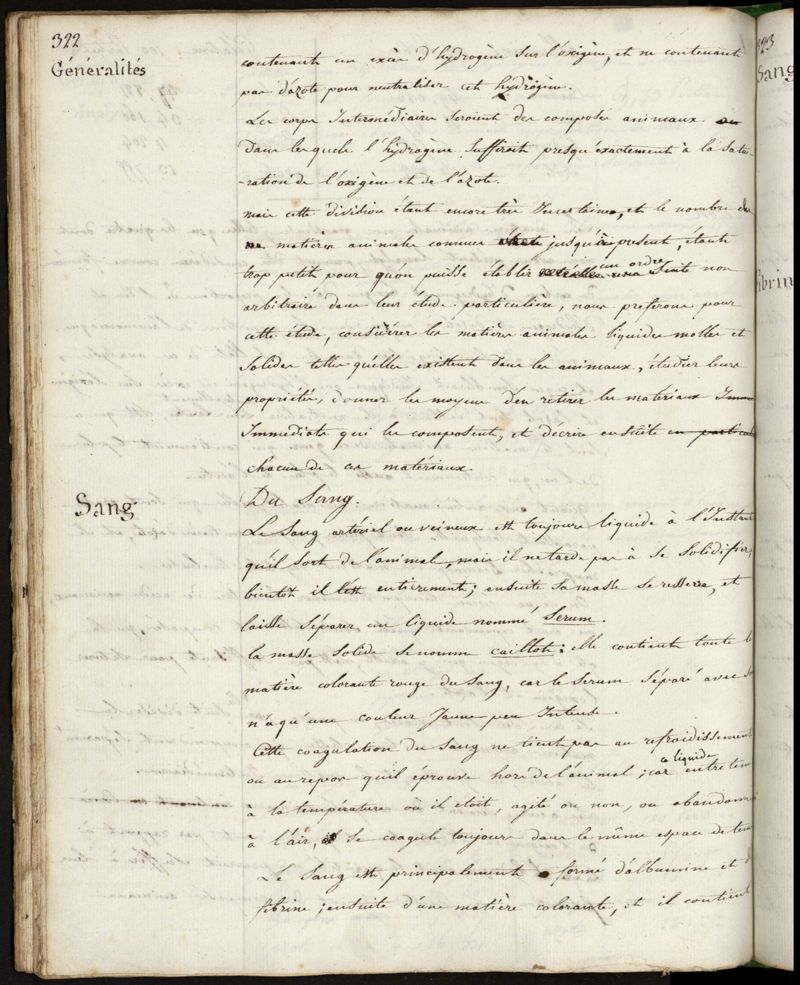 322
Généralités
contenant un excès d'hydrogène sur l'oxigène, et ne contenant
pas d'azote pour neutraliser cet hydrogène.
Les corps Intermédiaires seroient des composés animaux
dans lesquels l'hydrogène suffiroit presqu'exactement à la satu-
-ration de l'oxigène et de l'azote.
mais cette division étant encore très Incertaine, et le nombre des
matières animales connues jusqu'à présent, étant
trop petit pour qu'on puisse établir un ordre non
arbitraire dans leur étude particulière, nous preferons pour
cette étude, considérer les matières animales liquides molles et
solides telles qu'elles existent dans les animaux, étudier leurs
propriétés, donner les moyens d'en retirer les matériaux
Immédiats qui les composent, et décrire ensuite
chacun de ces matériaux.
Sang
Du Sang.
Le sang artériel ou veineux est toujours liquide à l'Instant
qu'il sort de l'animal, mais il ne tarde pas à se solidifier,
bientot il l'est entierement; ensuite sa masse se resserre, et
laisse séparer un liquide nommé serum.
la masse solide se nomme caillot: elle contient toute la
matière colorante rouge du sang, car le serum séparé avec
n'a qu'une couleur Jaune peu Intense.
Cette coagulation du sang ne tient pas au refroidissement
ou au repos qu'il éprouve hors de l'animal; car ce liquide entretenu
à la température où il etoit, agité ou non, ou abandonné
à l'air, se coagule toujours dans le même espace de tems
Le sang est principalement formé d'albumine et de
fibrine; ensuite d'une matière colorante, et il contient
323
Sang
Fibrin